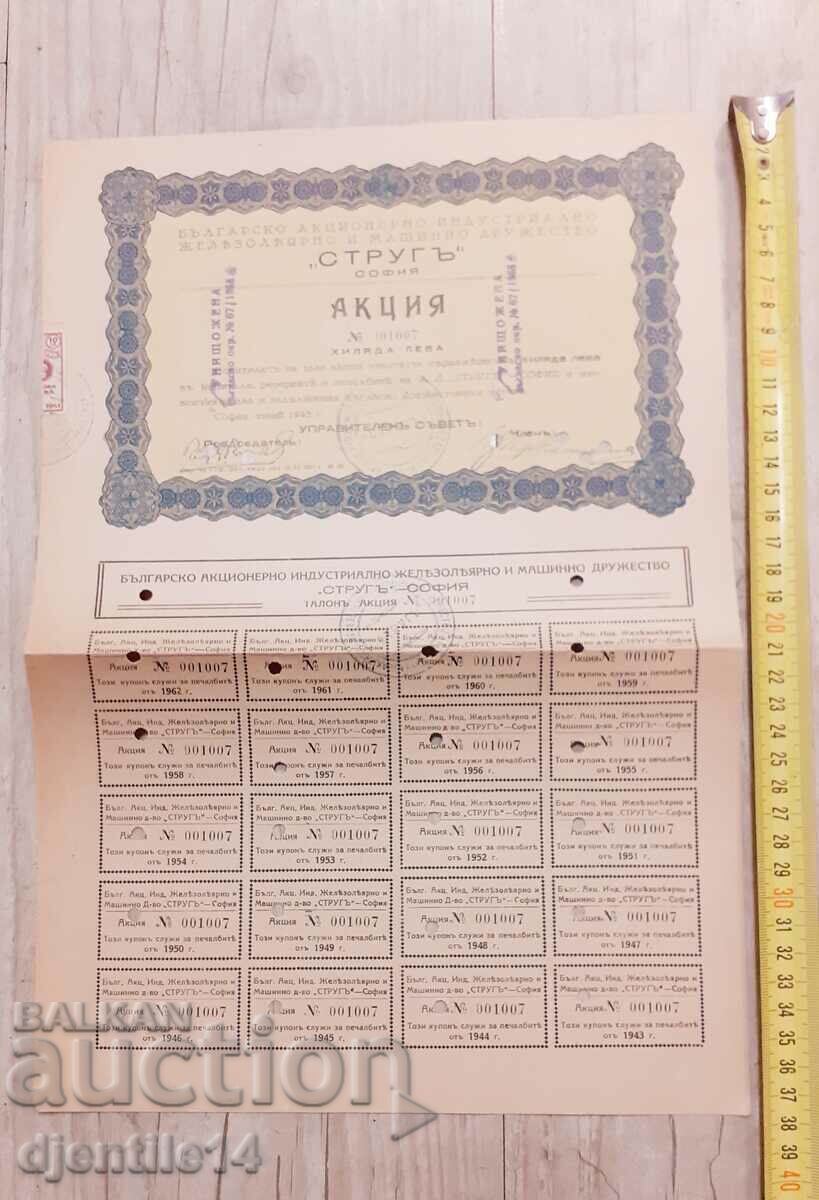 БЪЛГАРСКО АКЦИОНЕРНО ИНДУСТРИАЛНО
ЖЕЛѢЗОЛѢЯРНО И МАШИННО ДРУЖЕСТВО
„СТРУГЪ“
СОФИЯ
АКЦИЯ
№ 001007
ХИЛЯДА ЛЕВА
УНИЩОЖЕНА
УНИЩОЖЕНА
хиляда лева
София
УПРАВИТЕЛЕНЪ СЪВЕТЪ:
Председатель:
Членъ:
БЪЛГАРСКО АКЦИОНЕРНО ИНДУСТРИАЛНО ЖЕЛѢЗОЛѢЯРНО И МАШИННО ДРУЖЕСТВО
„СТРУГЪ“—СОФИЯ
ТАЛОНЪ АКЦИЯ № 001007
Бълг. Акц. Инд. Желѣзолѣярно и
Машинно д-во „СТРУГЪ“—София
Акция № 001007
Този купонъ служи за печалбитѣ
отъ 1962 г.
Бълг. Акц. Инд. Желѣзолѣярно и
Машинно д-во „СТРУГЪ“—София
Акция № 001007
Този купонъ служи за печалбитѣ
отъ 1961 г.
Бълг. Акц. Инд. Желѣзолѣярно и
Машинно д-во „СТРУГЪ“—София
Акция № 001007
Този купонъ служи за печалбитѣ
отъ 1960 г.
Бълг. Акц. Инд. Желѣзолѣярно и
Машинно д-во „СТРУГЪ“—София
Акция № 001007
Този купонъ служи за печалбитѣ
отъ 1959 г.
Бълг. Акц. Инд. Желѣзолѣярно и
Машинно д-во „СТРУГЪ“—София
Акция № 001007
Този купонъ служи за печалбитѣ
отъ 1958 г.
Бълг. Акц. Инд. Желѣзолѣярно и
Машинно д-во „СТРУГЪ“—София
Акция № 001007
Този купонъ служи за печалбитѣ
отъ 1957 г.
Бълг. Акц. Инд. Желѣзолѣярно и
Машинно д-во „СТРУГЪ“—София
Акция № 001007
Този купонъ служи за печалбитѣ
отъ 1956 г.
Бълг. Акц. Инд. Желѣзолѣярно и
Машинно д-во „СТРУГЪ“—София
Акция № 001007
Този купонъ служи за печалбитѣ
отъ 1955 г.
Бълг. Акц. Инд. Желѣзолѣярно и
Машинно д-во „СТРУГЪ“—София
Акция № 001007
Този купонъ служи за печалбитѣ
отъ 1954 г.
Бълг. Акц. Инд. Желѣзолѣярно и
Машинно д-во „СТРУГЪ“—София
Акция № 001007
Този купонъ служи за печалбитѣ
отъ 1953 г.
Бълг. Акц. Инд. Желѣзолѣярно и
Машинно д-во „СТРУГЪ“—София
Акция № 001007
Този купонъ служи за печалбитѣ
отъ 1952 г.
Бълг. Акц. Инд. Желѣзолѣярно и
Машинно д-во „СТРУГЪ“—София
Акция № 001007
Този купонъ служи за печалбитѣ
отъ 1951 г.
Бълг. Акц. Инд. Желѣзолѣярно и
Машинно Д-во „СТРУГЪ“—София
Акция № 001007
Този купонъ служи за печалбитѣ
отъ 1950 г.
Бълг. Акц. Инд. Желѣзолѣярно и
Машинно Д-во „СТРУГЪ“—София
Акция № 001007
Този купонъ служи за печалбитѣ
отъ 1949 г.
Бълг. Акц. Инд. Желѣзолѣярно и
Машинно Д-во „СТРУГЪ“—София
Акция № 001007
Този купонъ служи за печалбитѣ
отъ 1948 г.
Бълг. Акц. Инд. Желѣзолѣярно и
Машинно Д-во „СТРУГЪ“—София
Акция № 001007
Този купонъ служи за печалбитѣ
отъ 1947 г.
Бълг. Акц. Инд. Желѣзолѣярно и
Машинно д-во „СТРУГЪ“—София
Акция № 001007
Този купонъ служи за печалбитѣ
отъ 1946 г.
Бълг. Акц. Инд. Желѣзолѣярно и
Машинно д-во „СТРУГЪ“—София
Акция № 001007
Този купонъ служи за печалбитѣ
отъ 1945 г.
Бълг. Акц. Инд. Желѣзолѣярно и
Машинно д-во „СТРУГЪ“—София
Акция № 001007
Този купонъ служи за печалбитѣ
отъ 1944 г.
Бълг. Акц. Инд. Желѣзолѣярно и
Машинно д-во „СТРУГЪ“—София
Акция № 001007
Този купонъ служи за печалбитѣ
отъ 1943 г.
BALKAN
auction
djentile14